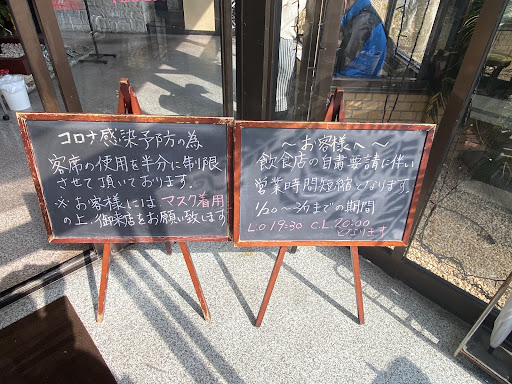 コロナ感染予防の為
客席の使用を半分に制限
させて頂いております.
※お客様にはマスク着用
の上、御来店をお願い致します
〜お客様へ〜
飲食店の自粛要請に伴い
営業時間短縮となります.
までの期間
L.O 19:30 C.L 20:00
となります